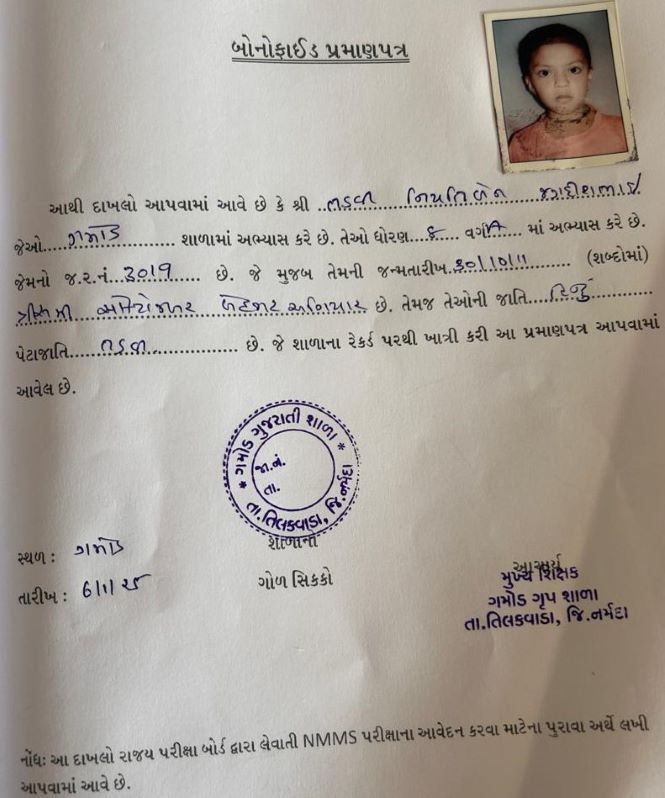 બોનોફાઈડ પ્રમાણપત્ર
આથી દાખલો આપવામાં આવે છે કે શ્રી ..તડવી નિયતિબેન જગદીશભાઈ
જેઓ....ગમોડ.............. શાળામાં અભ્યાસ કરે છે. તેઓ ધોરણ...૮... વર્ગ A.... માં અભ્યાસ કરે છે.
જેમનો જ.ર.નં...3019...... છે. જે મુજબ તેમની જન્મતારીખ.30/10/11............ (શબ્દોમાં)
ત્રીસમી ઓક્ટોમ્બર બેહજાર અગિયાર છે. તેમજ તેઓની જાતિ....હિન્દુ..............
પેટાજાતિ.......તડવી................... છે. જે શાળાના રેકર્ડ પરથી ખાત્રી કરી આ પ્રમાણપત્ર આપવામાં
આવેલ છે.
* ગમોડ ગુજરાતી શાળા *
જા.નં.
તા.
તા.તિલકવાડા, જિ.નર્મદા
શાળાનો
ગોળ સિક્કો
સ્થળ : ગમોડ
તારીખ : 6/1/25
આચાર્ય
મુખ્ય શિક્ષક
ગમોડ ગૃપ શાળા
તા.તિલકવાડા, જિ.નર્મદા
નોંધઃ આ દાખલો રાજય પરીક્ષા બોર્ડ દ્વારા લેવાતી NMMS પરીક્ષાના આવેદન કરવા માટેના પુરાવા અર્થે લખી
આપવામાં આવે છે.